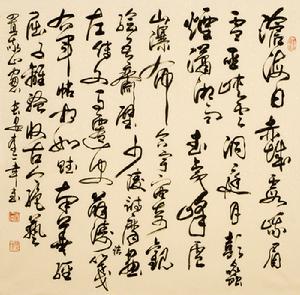 滄海日赤城霞峨眉
雪巫峽雲洞庭月彭蠡
煙瀟湘雨武夷峰廬
山瀑布合宇宙奇觀
繪吾齋壁少陵詩摩畫
詰
左傳文馬遷史薛濤箋
右軍帖相如賦南華經
屈子離騷收古今絕藝
置我山窗